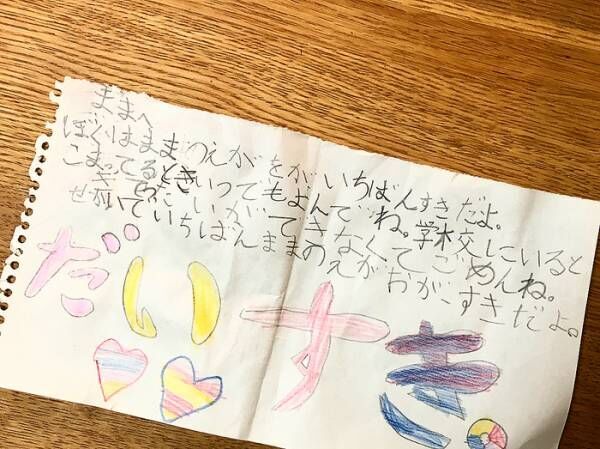 ままへ
ぼくはままのえがをがいちばんすきだよ。
こまってるときいつてもよんでね。学校にいると
いができなくてごめんね。
せかいでいちばんままのえがおがすきだよ。
だいすき